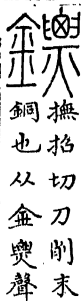 鏢
撫招切刀削末
銅也从金聲